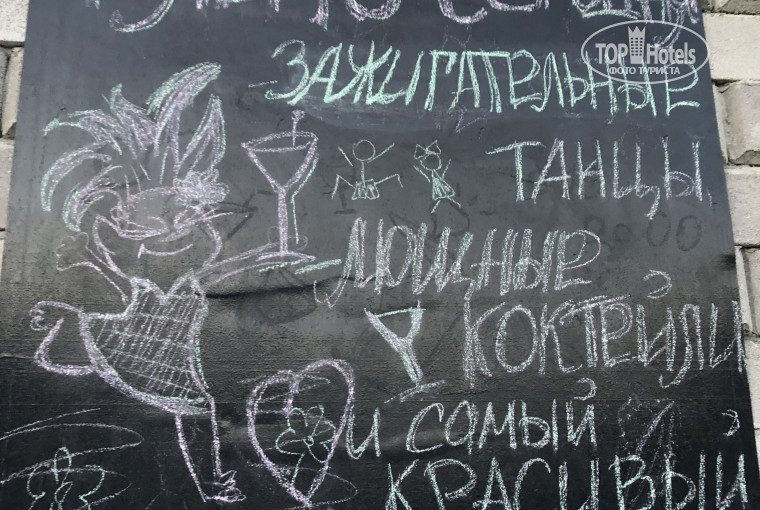 TOP Hotels
ФОТО ТУРИСТА
ЗАЖИГАТЕЛЬНЫЕ
ТАНЦЫ,
МОЩНЫЕ
КОКТЕЙЛИ
И САМЫЙ
КРАСИВЫЙ